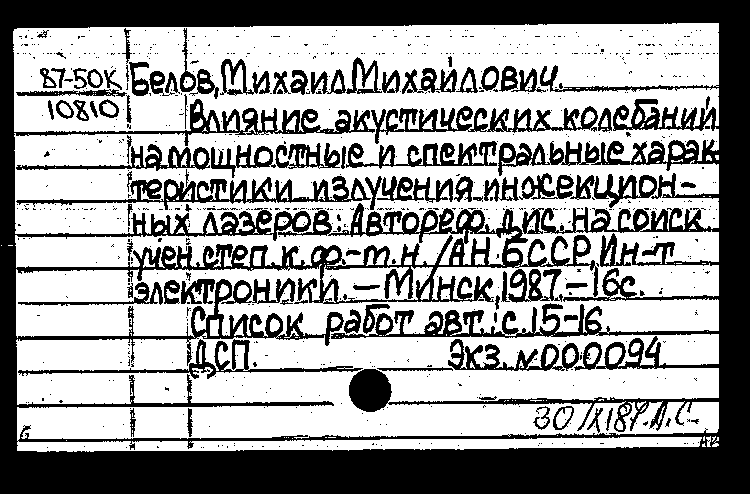 87-50К Белов, Михаил Михайлович.
10810 Влияние акустических колебаний
на мощностные и спектральные харак-
теристики излучения инжекцион-
ных лазеров: Автореф. дис. на соиск.
учен. степ. к. ф.-т. н. / АН БССР, Ин-т
электроники. — Минск, 1987. — 16с.
Список работ авт.: с. 15-16.
ДСП. Экз. N000094.
30/XI87. А.С.